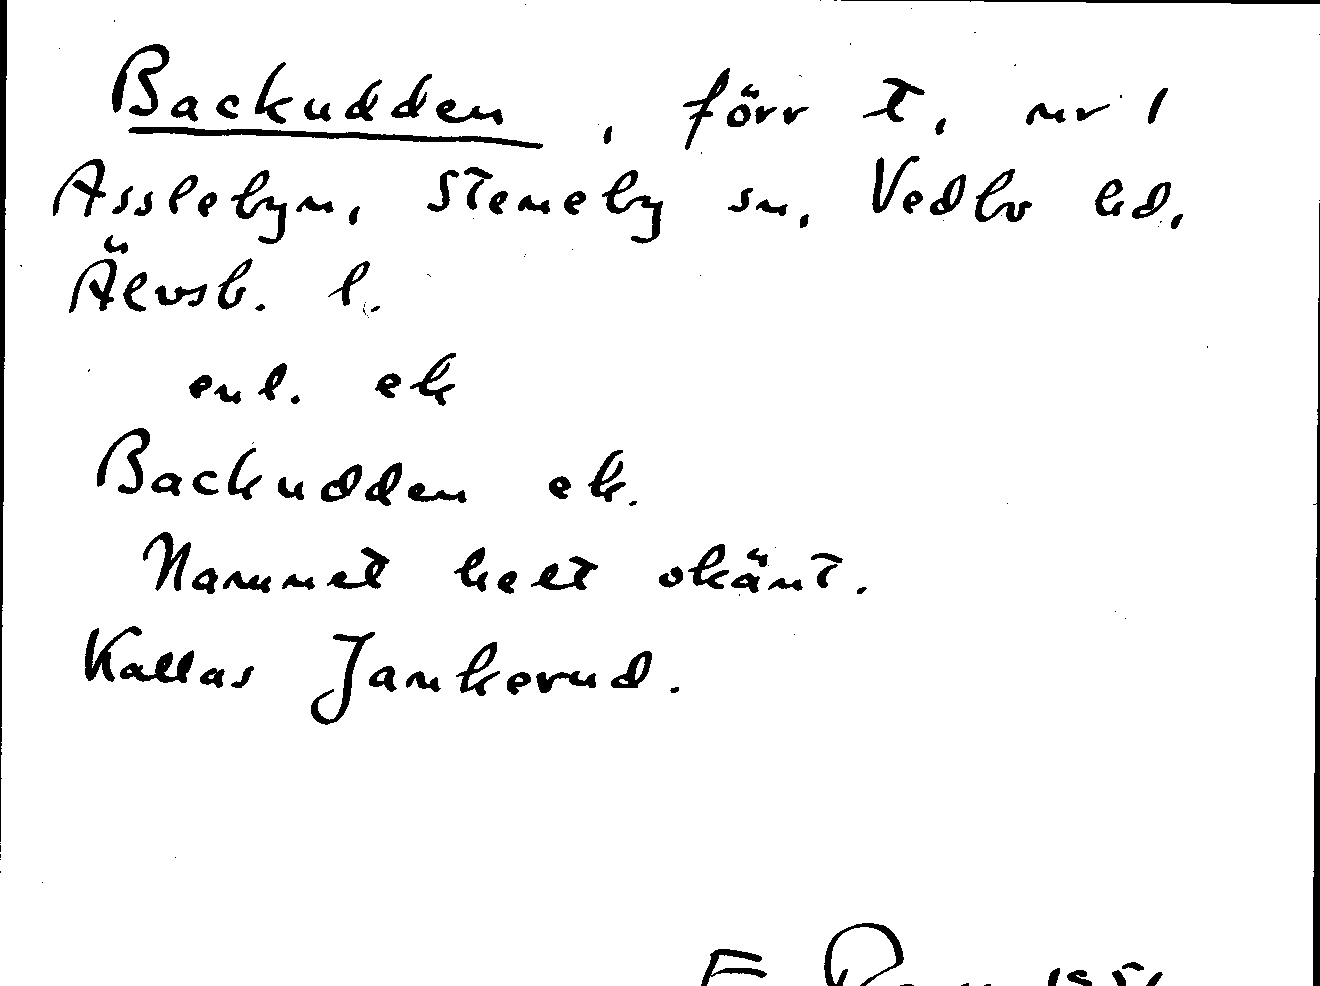 Backudden, förr t, nr 1
Asslebyn, Steneby sn, Vedbo hd,
Älvsb. l.
enl. ek
Backudden ek.
Namnet helt okänt.
Kallas Jankerud.